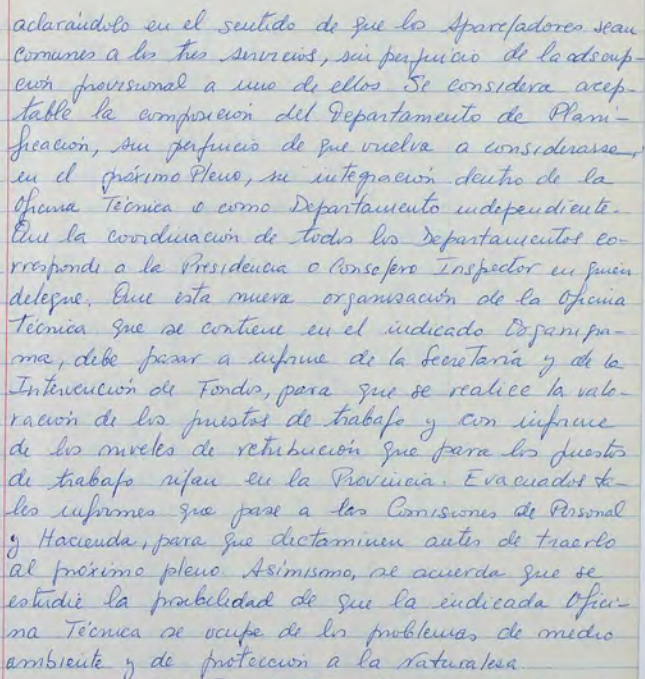 aclarándolo en el sentido de que los Aparejadores sean
comunes a los tres servicios, sin perjuicio de la adscrip-
ción provisional a uno de ellos Se considera acep-
table la composición del Departamento de Plani-
ficación, sin perjuicio de que vuelva a considerarse,
en el próximo Pleno, su integración dentro de la
Oficina Técnica o como Departamento independiente.
Que la coordinación de todos los Departamentos co-
rresponde a la Presidencia o Consejero Inspector en quien
delegue. Que esta nueva organización de la Oficina
Técnica que se contiene en el indicado Organigra-
ma, debe pasar a informe de la Secretaría y de la
Intervención de Fondos, para que se realice la valo-
ración de los puestos de trabajo y con informe
de los niveles de retribución que para los puestos
de trabajo rijan en la Provincia. Evacuados ta-
les informes que pase a las Comisiones de Personal
y Hacienda, para que dictaminen antes de traerlo
al próximo pleno. Asimismo, se acuerda que se
estudie la posibilidad de que la indicada Ofici-
na Técnica se ocupe de los problemas de medio
ambiente y de protección a la naturalesa